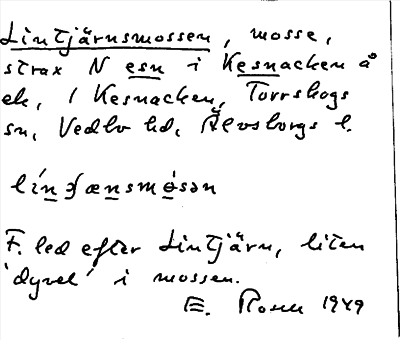 Lintjärnsmossen, mosse,
strax N esn i Kesnacken å
ek, 1 Kesnacken, Torrskogs
sn, Vedbo hd, Älvsborgs l.
F. led efter Lintjärn, liten
'dyvel' i mossen.
E. Rosen 1949